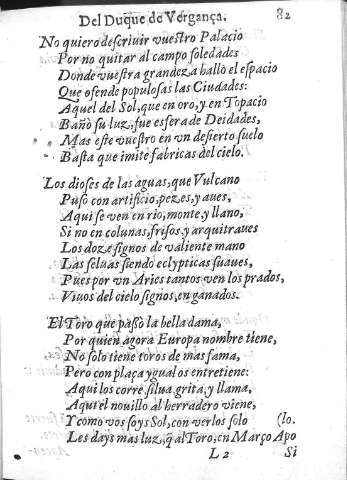 Del Duque de Vergança. 82
No quiero descriuir vuestro Palacio
Por no quitar al campo soledades
Donde vuestra grandeza hallò el espacio
Que ofende populosas las Ciudades:
Aquel del Sol, que en oro, y en Topacio
Bañò su luz, fue esfera de Deidades,
Mas este vuestro en vn desierto suelo
Basta que imite fabricas del cielo.
Los dioses de las aguas, que Vulcano
Puso con artificio, pezes, y aues,
Aqui se ven en rio, monte, y llano,
Si no en colunas, frisos, y arquitraues
Los doze signos de valiente mano
Las seluas siendo eclypticas suaues,
Pues por vn Aries tantos ven los prados,
Viuos del cielo signos, en ganados.
El Toro que passò la bella dama,
Por quien agora Europa nombre tiene,
No solo tiene toros de mas fama,
Pero con plaça ygual os entretiene:
Aqui los corre, silua, grita, y llama,
Aqui el nouillo al herradero viene,
Y como vos soys Sol, con verlos solo (lo.
Les days mas luz, q̃ al Toro, en Março Apo
L 2 Si